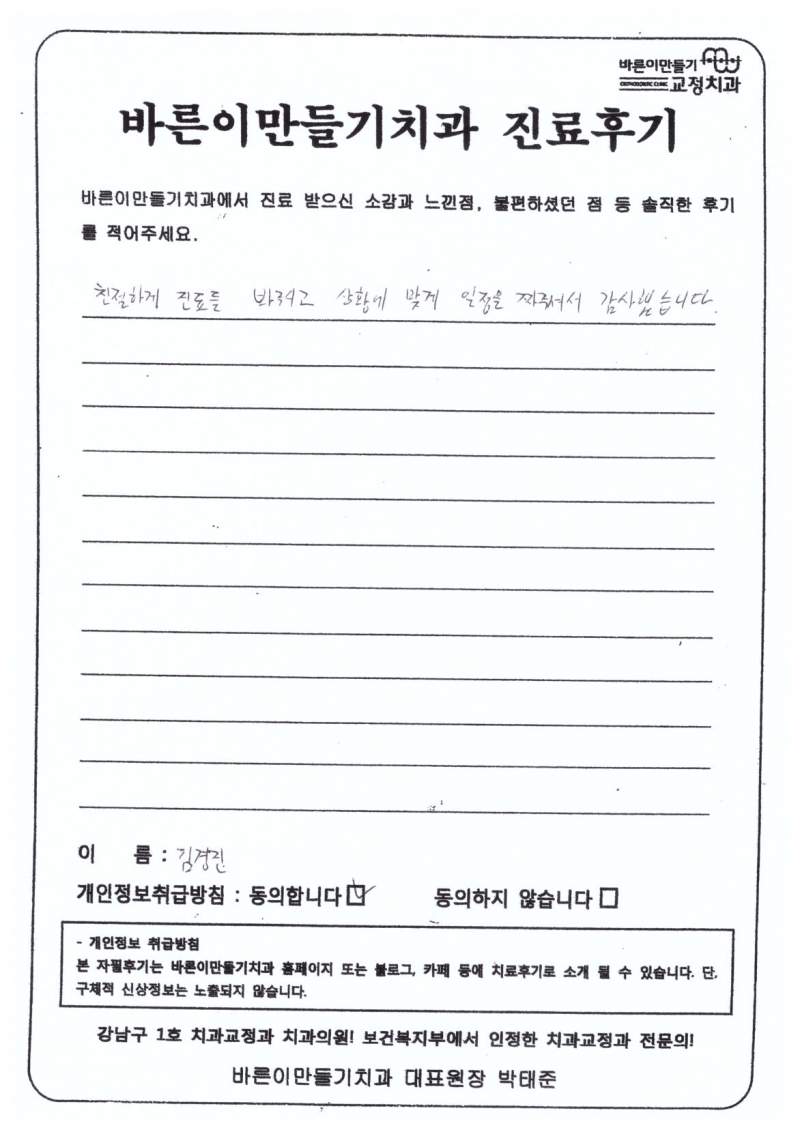 바른이만들기
ORTHODONTIC CLINIC 교정치과
바른이만들기치과 진료후기
바른이만들기치과에서 진료 받으신 소감과 느낀점, 불편하셨던 점 등 솔직한 후기
를 적어주세요.
친절하게 진료를 봐주시고 상황에 맞게 일정을 짜주셔서 감사했습니다.
이 름 : 김경진
개인정보취급방침 : 동의합니다 ☑ 동의하지 않습니다 ☐
- 개인정보 취급방침
본 자필후기는 바른이만들기치과 홈페이지 또는 블로그, 카페 등에 치료후기로 소개 될 수 있습니다. 단,
구체적 신상정보는 노출되지 않습니다.
강남구 1호 치과교정과 치과의원! 보건복지부에서 인정한 치과교정과 전문의!
바른이만들기치과 대표원장 박태준